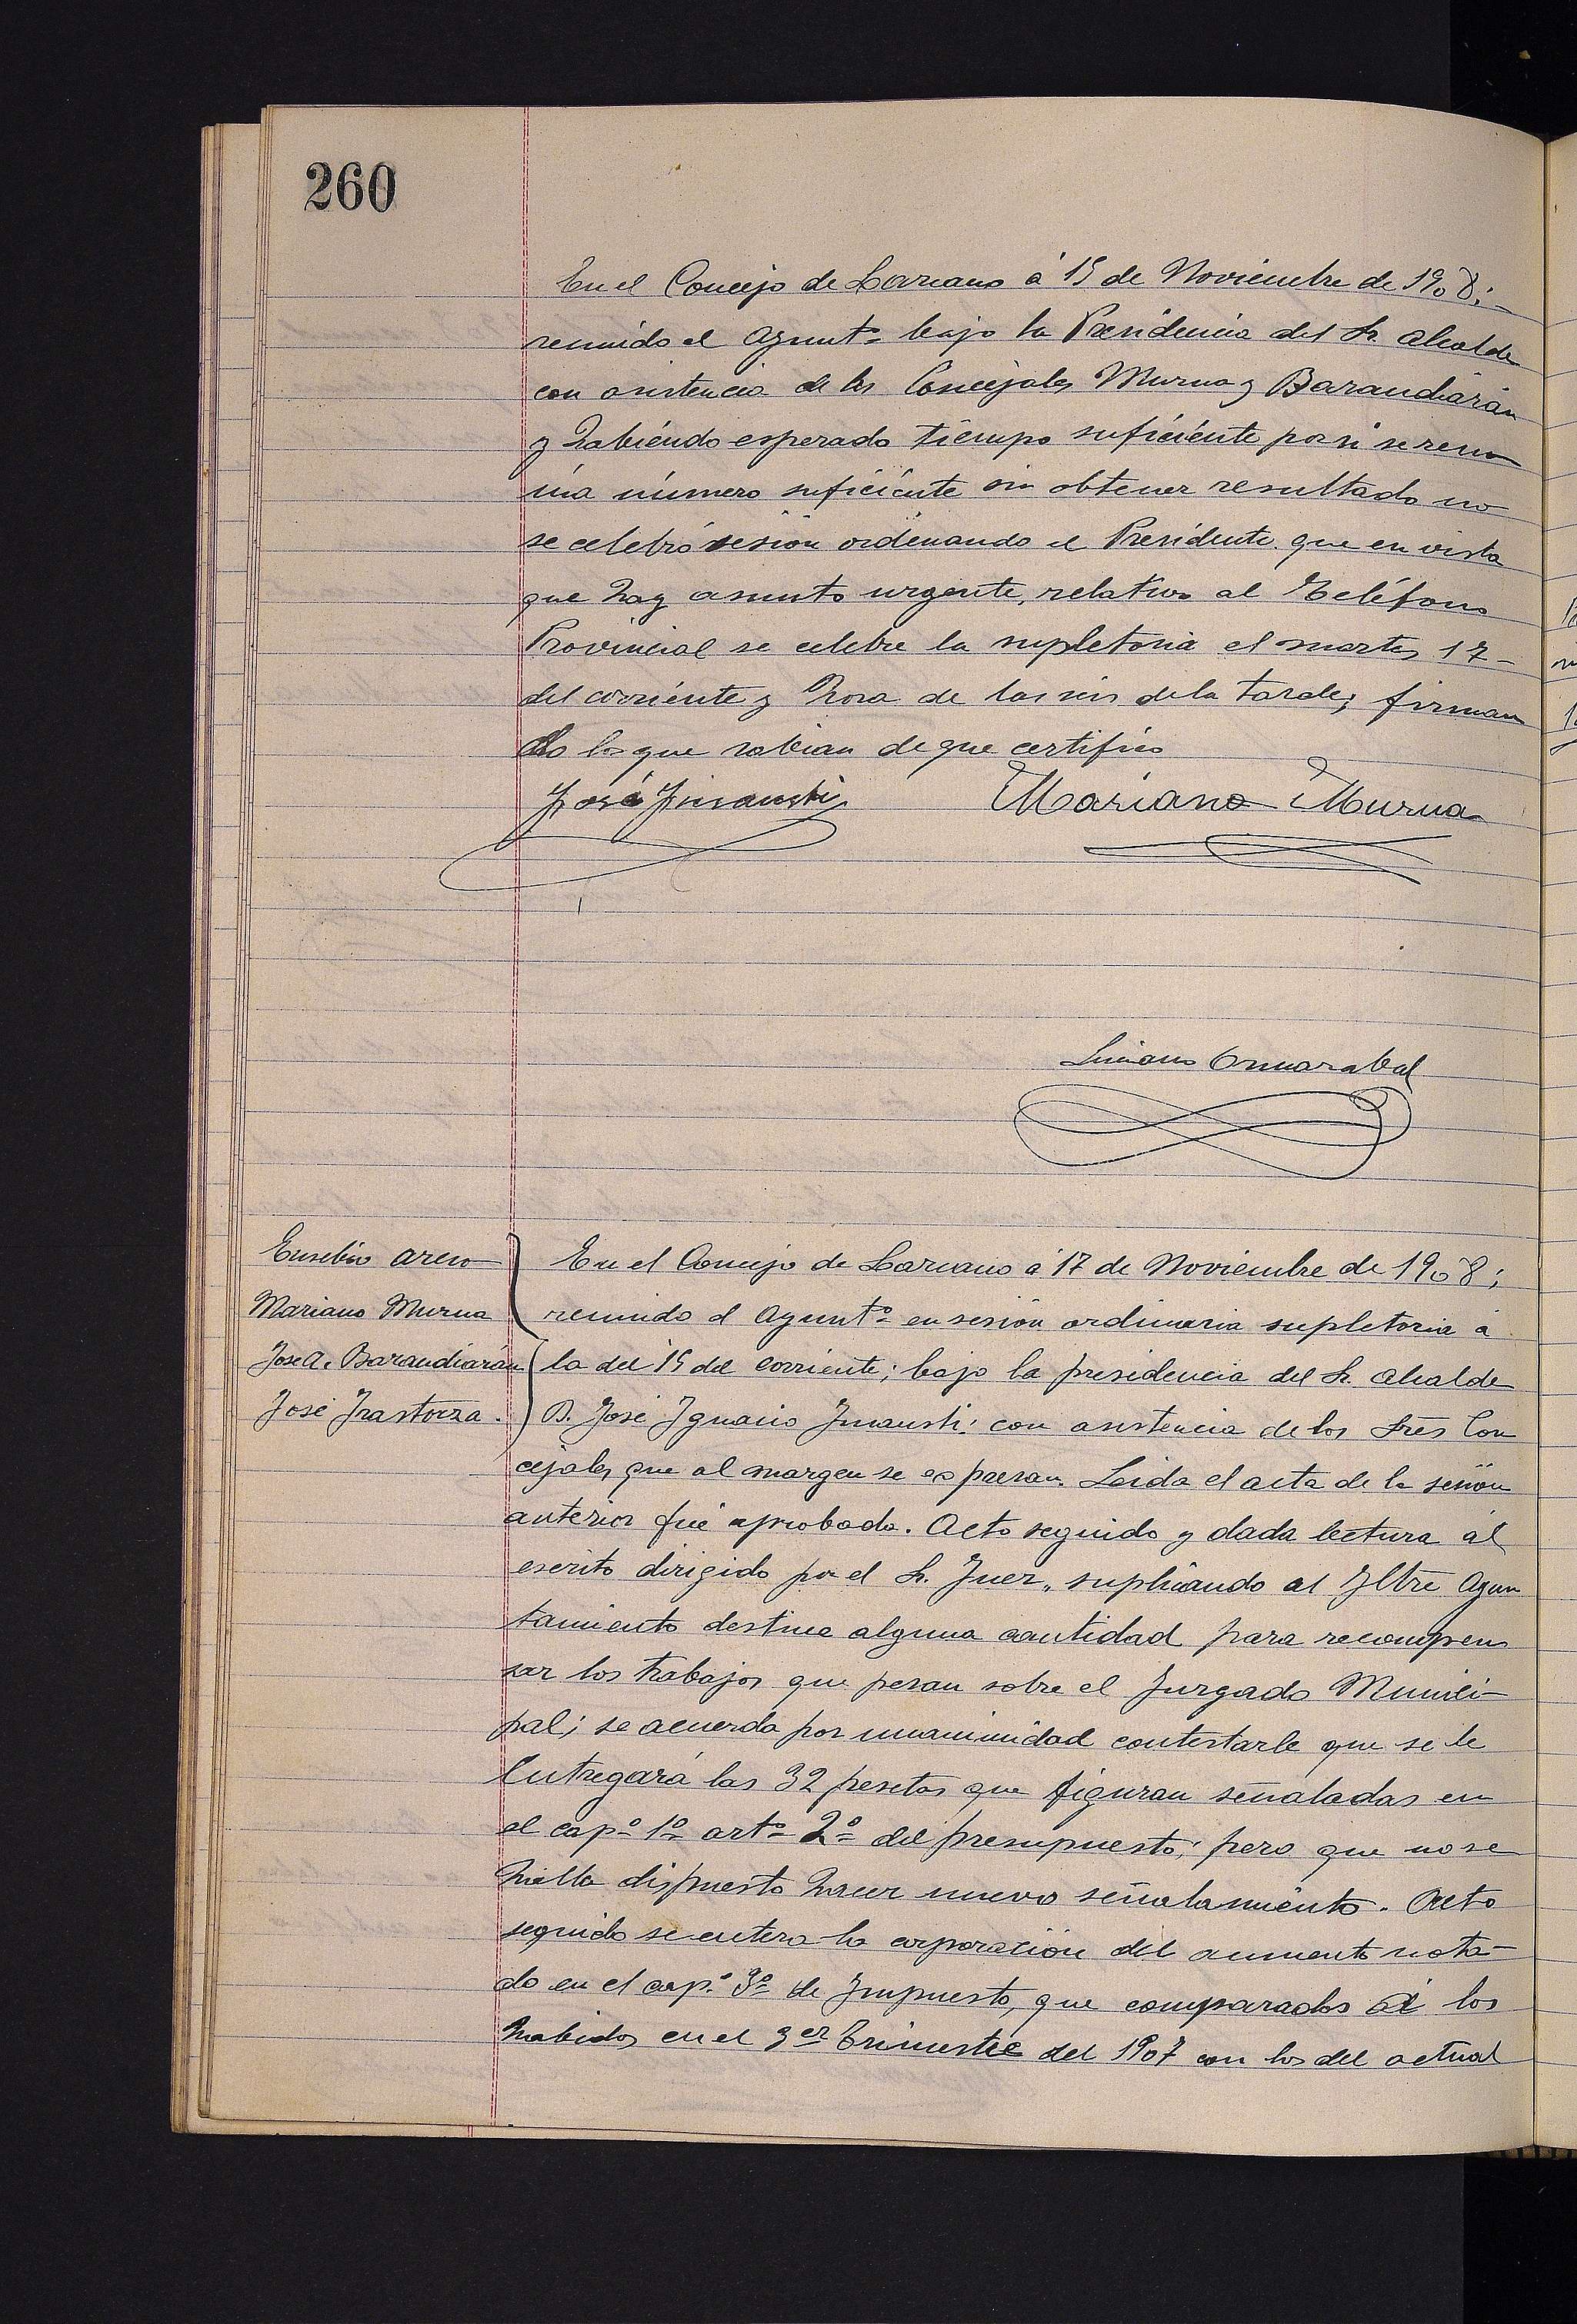 260
En el Concejo de Lazcano á 15 de Noviembre de 1908;-
reunido el Ayuntº bajo la Presidencia del Sr. Alcalde
con asistencia de los Concejales Murua y Barandiarán
y habiendo esperado tiempo suficiente por si se reu
nia número suficiente sin obtener resultado no
se celebró sesion ordenando el Presidente que en vista
que hay asunto urgente, relativo al Teléfono
Provincial se celebre la supletoria el martes 17-
del corriente y hora de las seis de la tarde; firman
do los que sabian de que certifico
José Ignacio Mariano Murua
Luciano
Eusebio
Mariano Murua
José A. Barandiarán
José Irastorza.
En el Concejo de Lazcano á 17 de Noviembre de 1908;
reunido el Ayuntº en sesión ordinaria supletoria á
la del 15 del corriente; bajo la presidencia del Sr. Alcalde
D. José Ignacio con asistencia de los Sres Con
cejales que al margen se expresan. Leida el acta de la sesión
anterior fué aprobada. Acto seguido y dada lectura al
escrito dirigido por el Sr. Juez, suplicando al Iltre Ayun
tamiento destine alguna cantidad para recompen
sar los trabajos que pesan sobre el Juzgado Munici-
pal; se acuerda por unanimidad contestarle que se le
entregará las 32 pesetas que figuran señaladas en
el capº 1º artº 2º del presupuesto; pero que no se
halla dispuesto hacer nuevo señalamiento. Acto
seguido se entera la corporación del aumento nota-
do en el cap.º 3º de Impuesto, que comparados á los
habidos en el 3er Trimestre del 1907 con los del actual